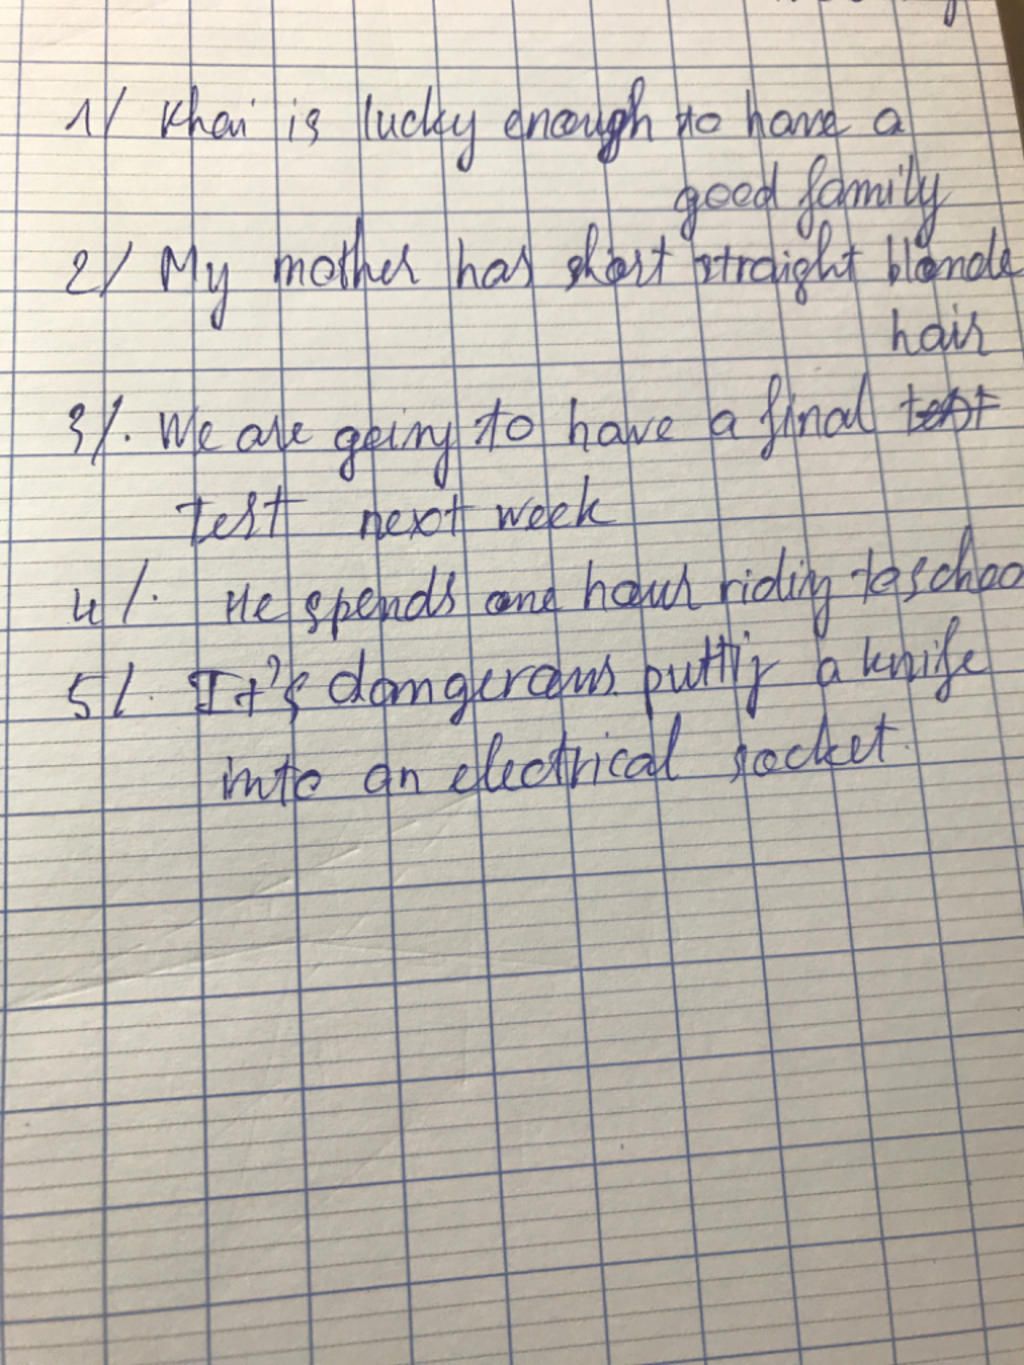 1/ Khai is lucky enough to have a
good family
2/ My mother has short straight blonde
hair
3/. We are going to have a final test
test next week
4/. He spends one hour riding to schoo
5/. It's dangerous putting a knife
into an electrical socket.